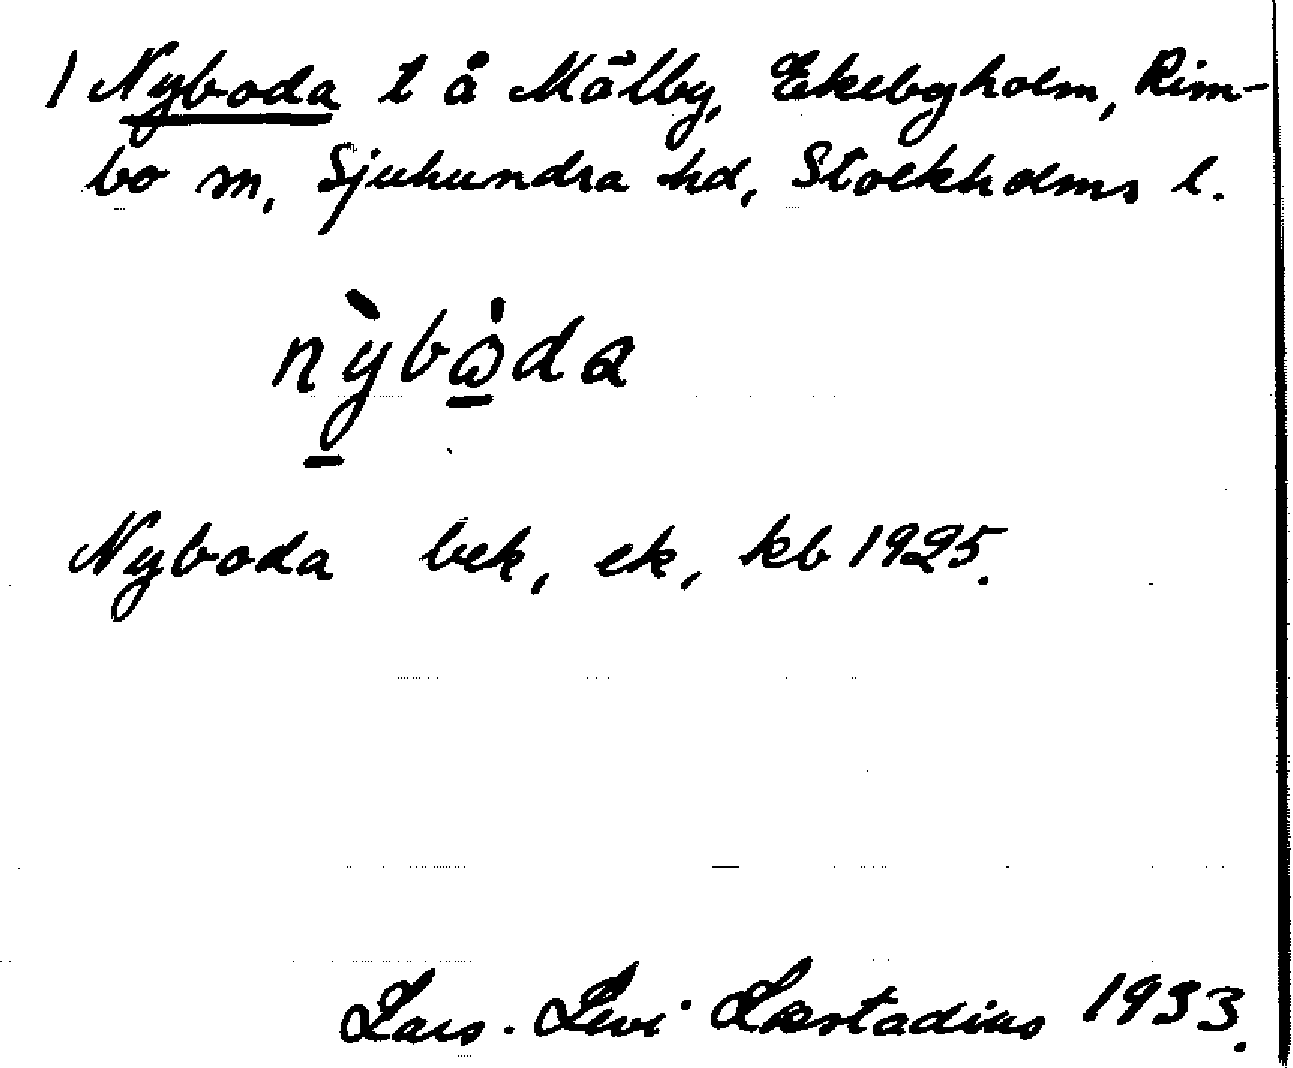 1 Nyboda t å Målby, Ekebyholm, Rim-
bo sn, Sjuhundra hd, Stockholms l.
nỳbωda
Nyboda bek, ek, kb 1925.
Lars-Levi Læstadius 1933.